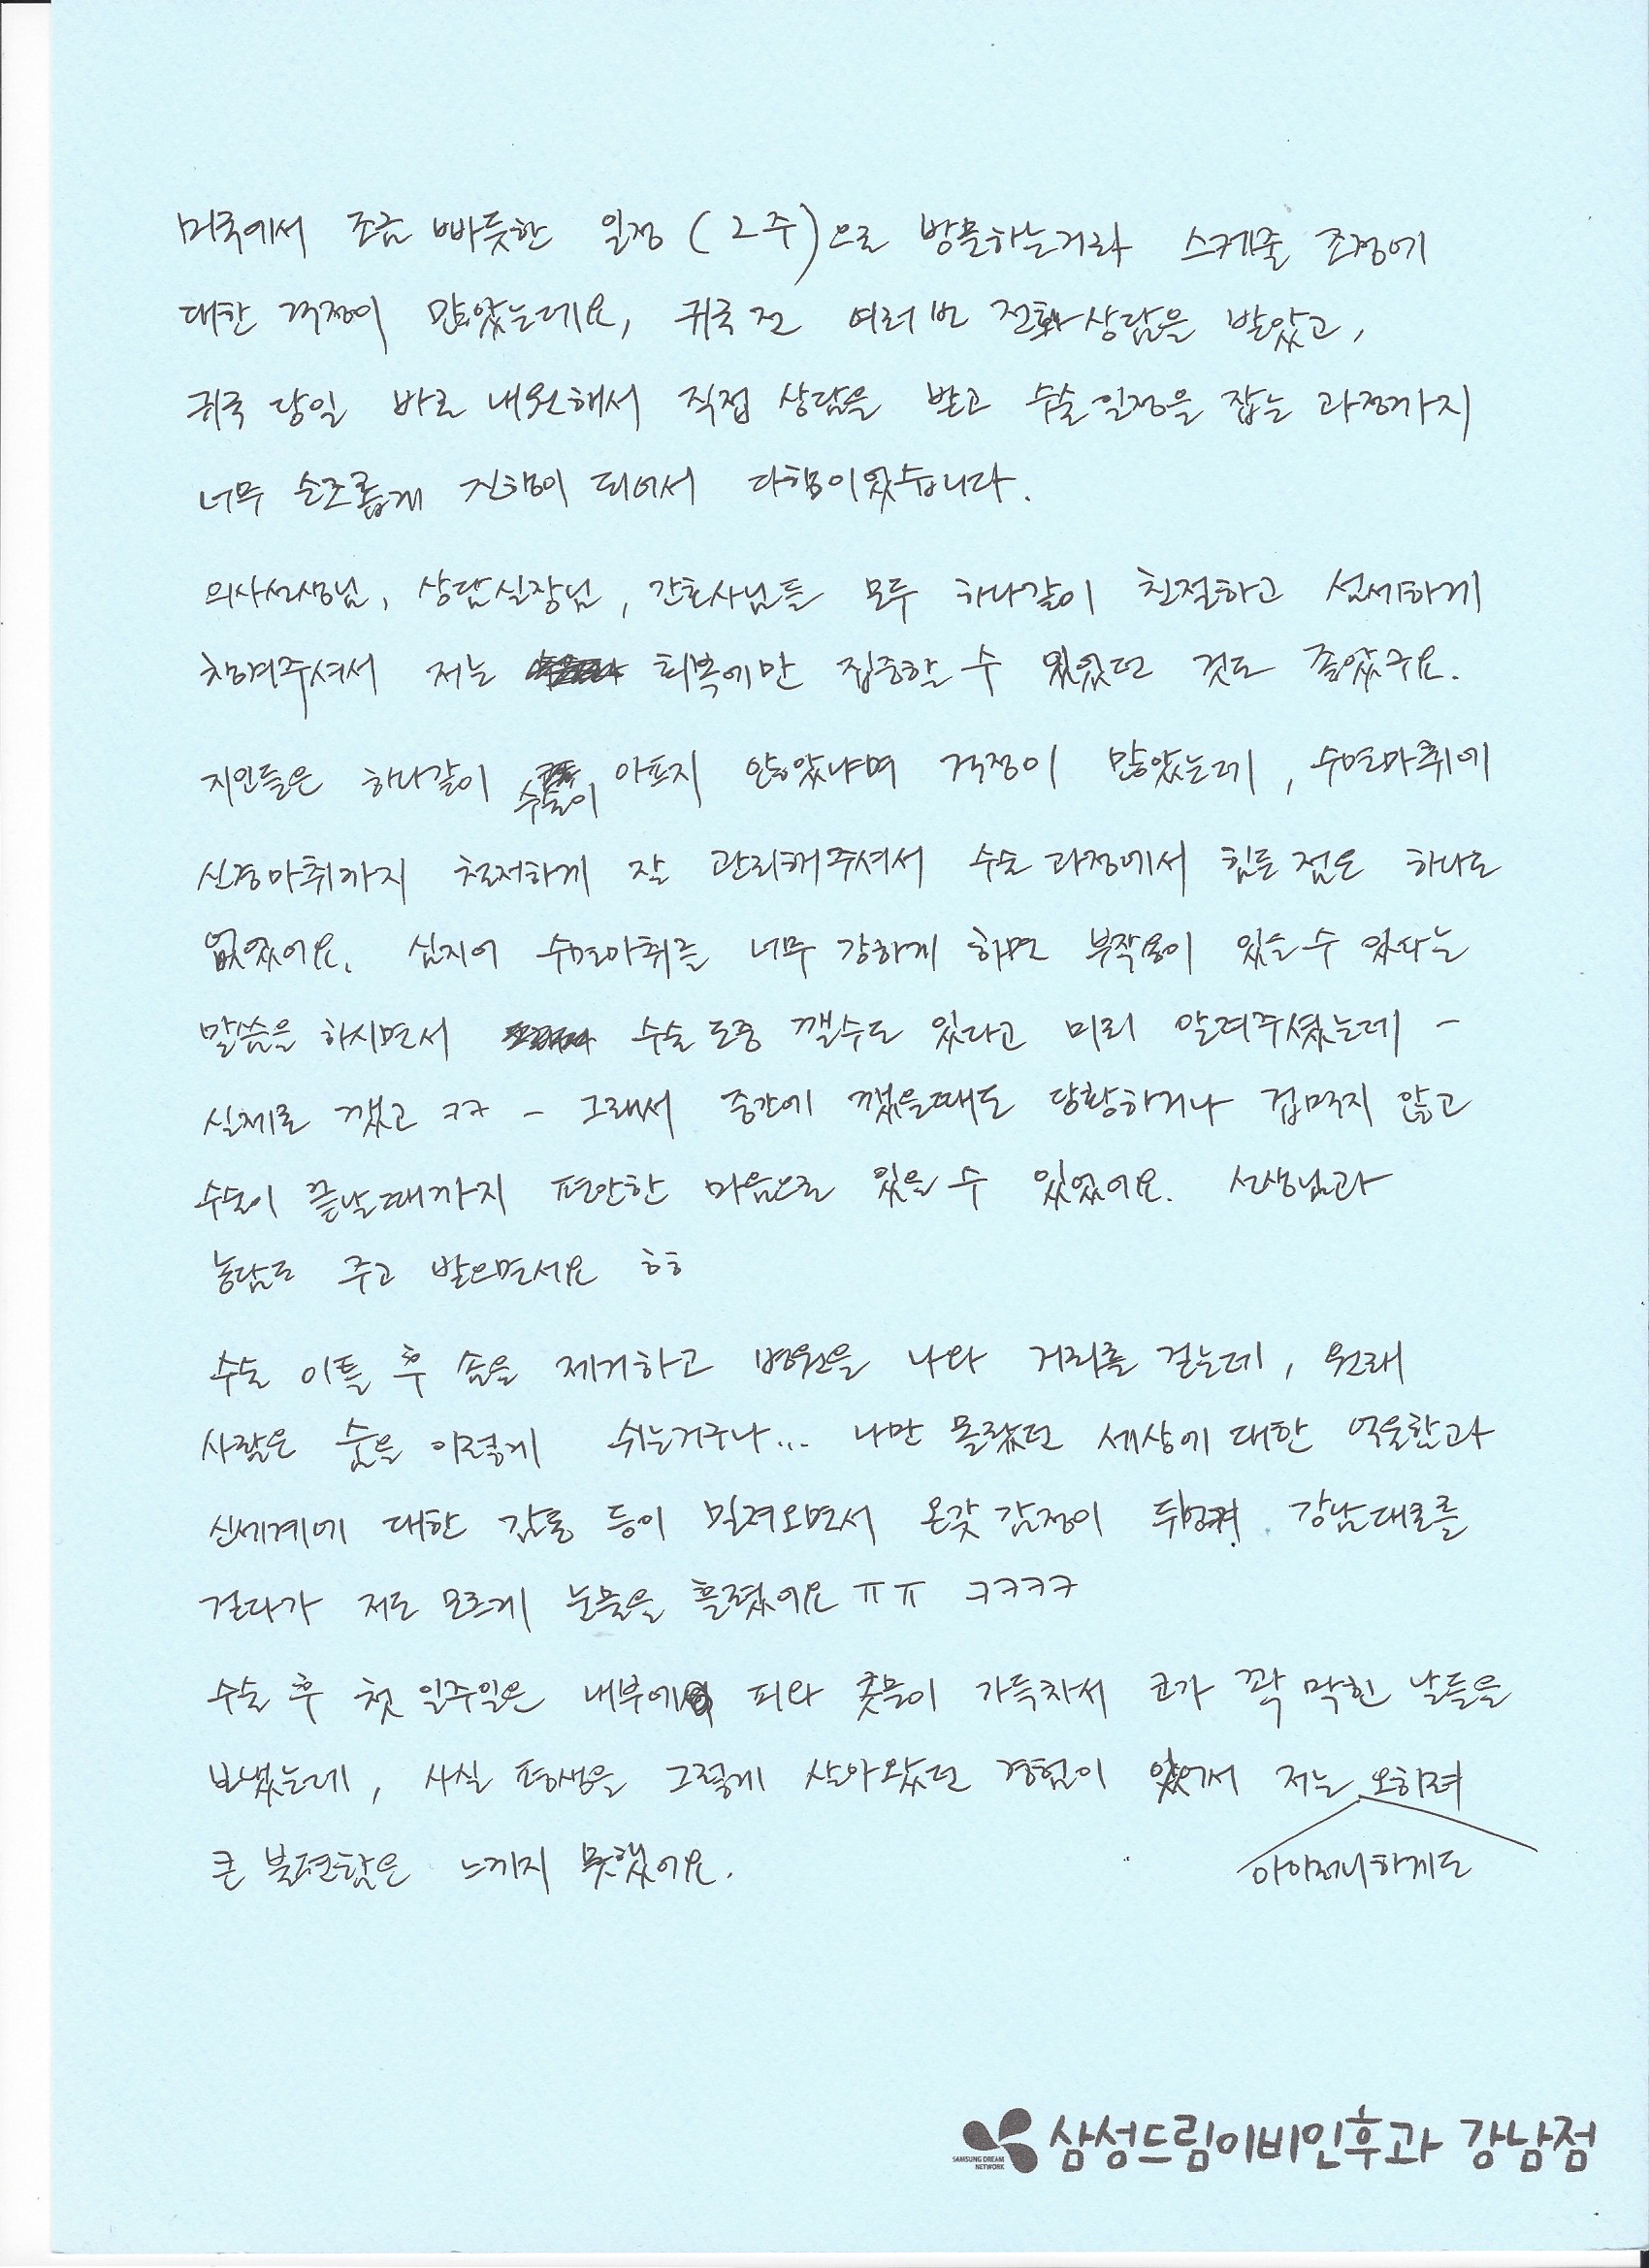 미국에서 조금 빠듯한 일정 (2주)으로 방문하는거라 스케줄 조정에
대한 걱정이 많았는데요, 귀국 전 여러번 전화상담을 받았고,
귀국 당일 바로 내원해서 직접 상담을 받고 수술일정을 잡는 과정까지
너무 순조롭게 진행이 되어서 다행이었습니다.
의사선생님, 상담실장님, 간호사님들 모두 하나같이 친절하고 섬세하게
챙겨주셔서 저는 회복에만 집중할 수 있었던 것도 좋았구요.
지인들은 하나같이 수술이 아프지 않았냐며 걱정이 많았는데, 수면마취에
신경마취까지 철저하게 잘 관리해주셔서 수술 과정에서 힘든 점은 하나도
없었어요. 심지어 수면마취를 너무 강하게 하면 부작용이 있을 수 있다는
말씀을 하시면서 수술 도중 깰수도 있다고 미리 알려주셨는데 -
실제로 깼고 ㅋㅋ - 그래서 중간에 깼을때도 당황하거나 겁먹지 않고
수술이 끝날때까지 편안한 마음으로 있을 수 있었어요. 선생님과
농담도 주고 받으면서요 ㅎㅎ
수술 이틀 후 솜을 제거하고 병원을 나와 거리를 걷는데, 원래
사람은 숨을 이렇게 쉬는거구나... 나만 몰랐던 세상에 대한 억울함과
신세계에 대한 감동 등이 밀려오면서 온갖 감정이 뒤엉켜 강남대로를
걷다가 저도 모르게 눈물을 흘렸어요 ㅠㅠ ㅋㅋㅋㅋ
수술 후 첫 일주일은 내부에 피와 콧물이 가득차서 코가 꽉 막힌 날들을
보냈는데, 사실 평생을 그렇게 살아왔던 경험이 있어서 저는 오히려
아이러니하게도
큰 불편함은 느끼지 못했어요.
삼성드림이비인후과 강남점
SAMSUNG DREAM
NETWORK